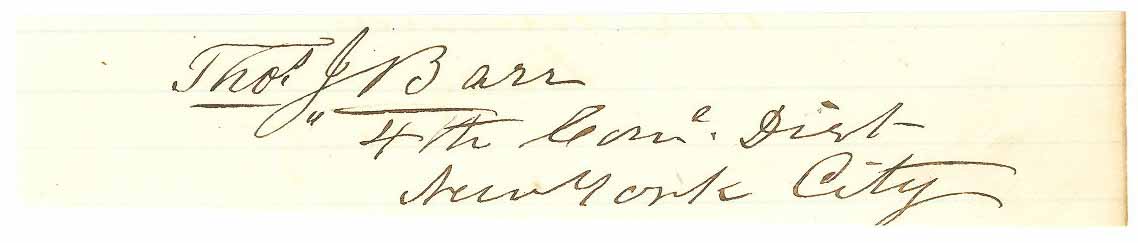 Thos J Barr
4th Cone. Dist
New York City